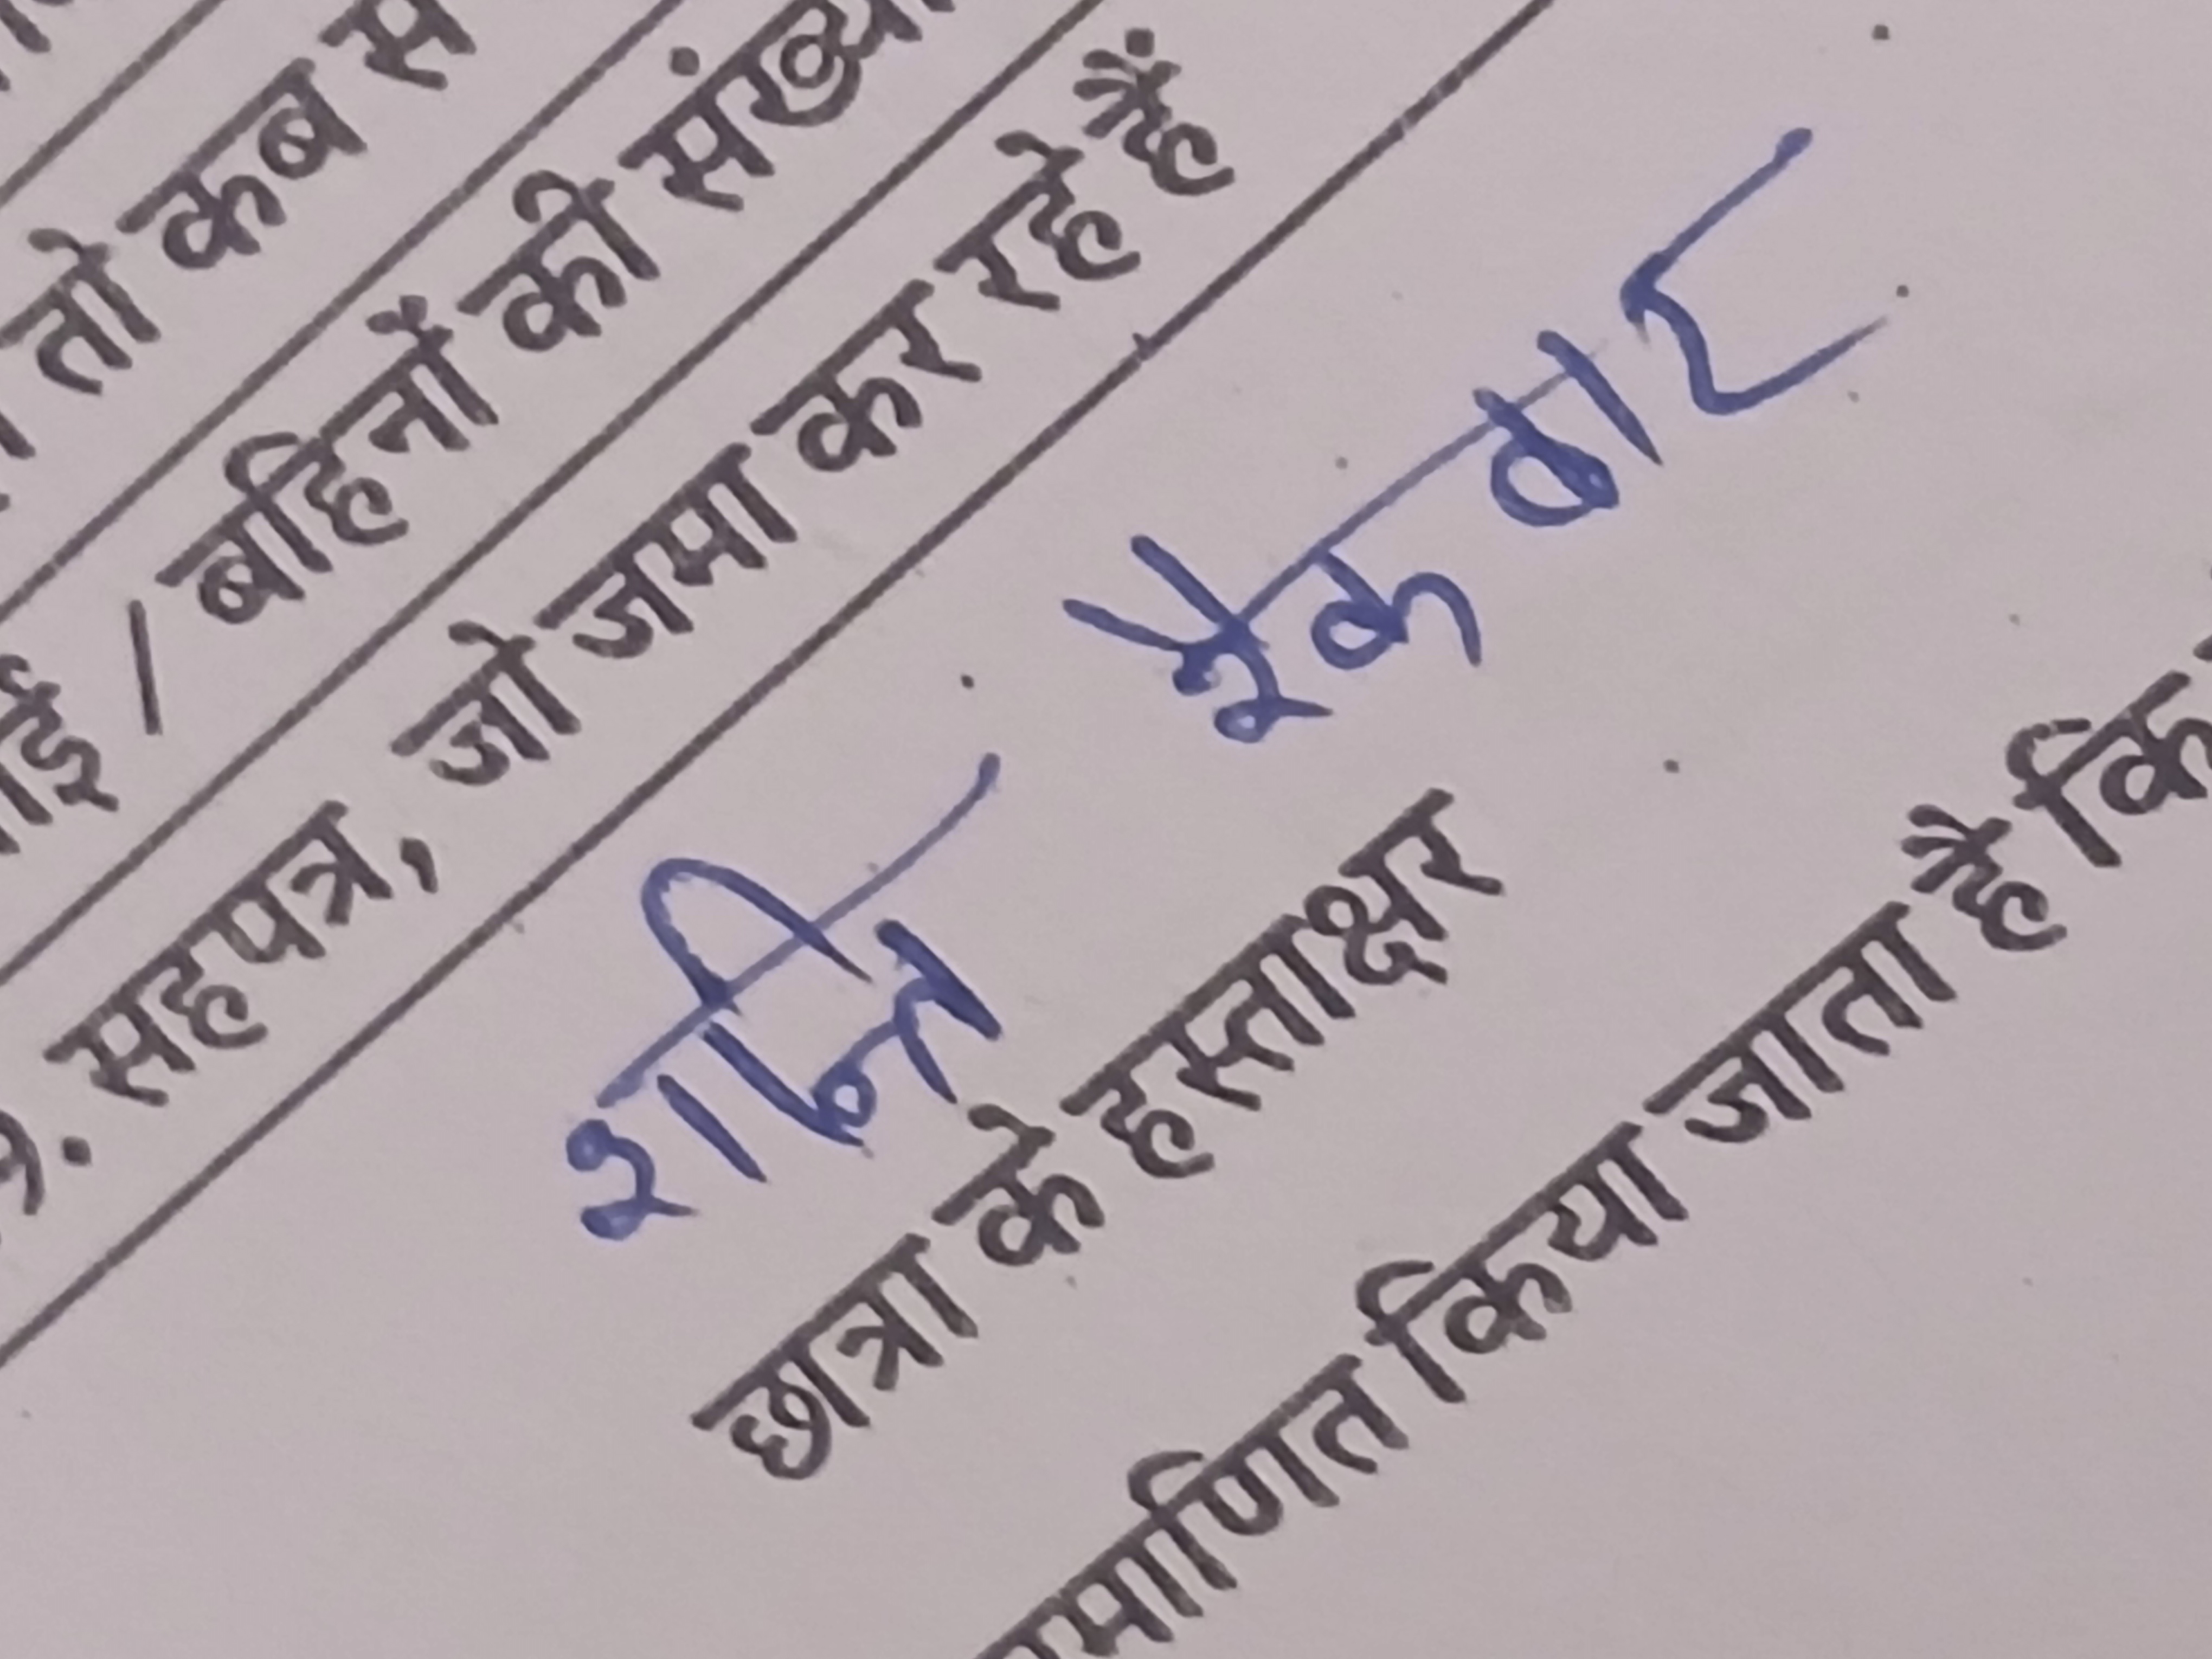 तो कब से
भाई / बहिनों की संख्या
सहपत्र, जो जमा कर रहे हैं
शान्ति
छात्रा के हस्ताक्षर
प्रमाणित किया जाता है कि